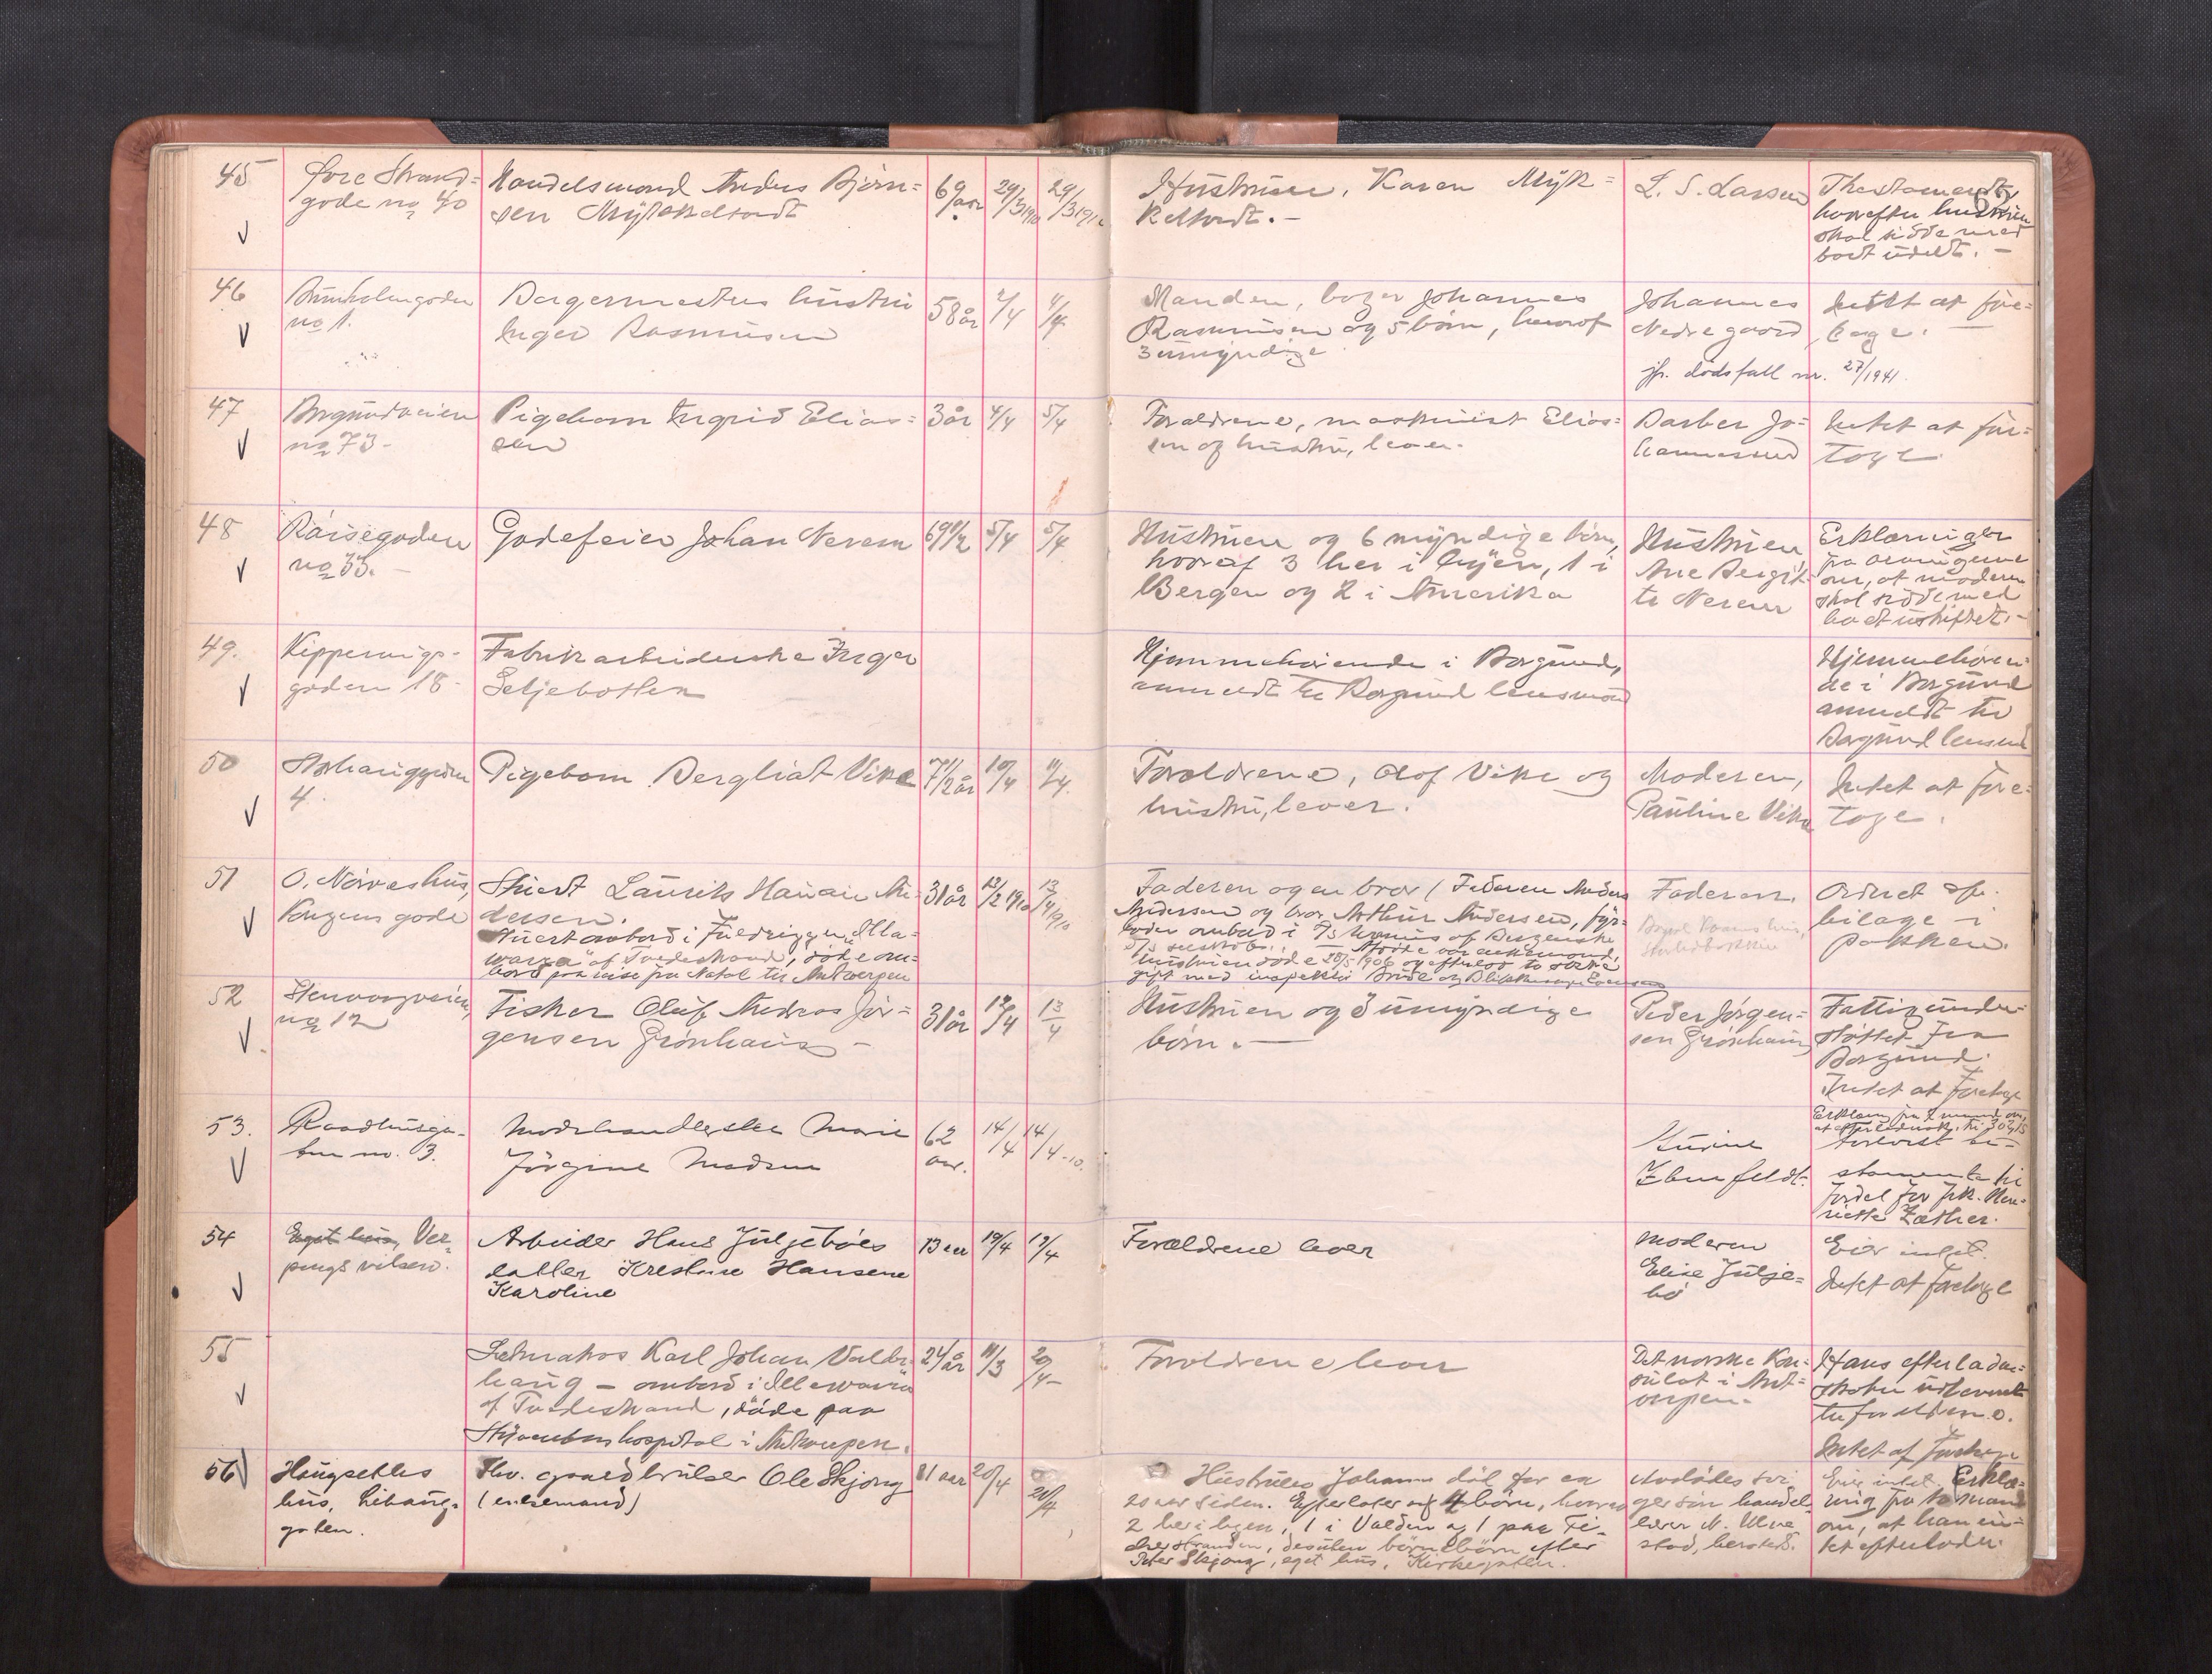 45
Øvre Strand-
gade no 40
Handelsmand Anders Bjørn-
sen
69 aar
29/3 1910
29/3 1910
Hustruen, Karen Myk-
L. S. Larsen
Thestamente,
hvorefter hustruen
skal sidde med
boet udelt. -
46
no 1.
Bagermesters hustru
Inger Rasmussen
58 år
2/4
4/4
Manden, bager Johannes
Rasmussen og 5 børn, hvoraf
3 umyndige
Johannes
Nedregaard
jfr. dødsfall nr. 27/1941.
Intet at fore-
tage. -
47
Borgundveien
no 73 -
Pigebarn Ingrid Elias-
sen
3 år
4/4
5/4
Forældrene, maskinist Elias-
sen og hustru, lever.
Barber Jo-
hannessen
Intet at fore-
tage
48
no 33. -
Gadefeier Johan Neresen
69 1/2
5/4
5/4
Hustruen og 6 myndige børn,
hvoraf 3 her i byen, 1 i
Bergen og 2 i Amerika
Hustruen,
Ane Bergit-
te
Erklæringer
fra arvingerne
om, at moderen
skal sidde med
boet uskiftet. -
49.
Kippervigs-
gaden 18 -
Fabrikarbeiderske Inger
Seljebotten
Hjemmehørende i Borgund,
anmeldt til Borgund lensmand
Hjemmehøren-
de i Borgund
anmeldt til
Borgund lensmd
50
4.
Pigebarn Bergliot Vike
7 1/2 år
10/4
11/4.
Forældrene, Olof Vike og
hustru, lever.
Moderen,
Pauline Vike
Intet at fore-
tage.
51
O. Nørves hus,
Kongens gade
Stuert Laurits Hauan An-
dersen.
Stuert ombord i
af Tvedestrand, døde om-
bord paa reise fra Natal til Antwerpen
31 år
12/2 1910
13/4 1910
Faderen og en bror (Faderen Anders
Andersen og bror Arthur Andersen, fyr-
bøder ombord i af Bergenske
Afdøde var enkemand,
hustruen døde 28/5 1906 og efterlod to
gift med
Faderen.
Ordnet se
bilage i
pakken.
52
Stenvaagveien,
no 12
Fisker Oluf Andreas Jør-
gensen Grønhaug -
31 år
12/4
13/4
Hustruen og 3 umyndige
børn. -
Peder Jørgen-
sen Grønhaug
Fattigunder-
støttet fra
Borgund.
Intet at foretage
53.
Raadhusga-
ten no. 3.
Modehandlerske Marie
Jørgine Madsen
62
aar.
14/4
14/4 -10.
Erklæring fra 2 mænd om,
at
stamente til
fordel for frk. Hen-
riette Zæther.
54
Eget hus, Ver-
Arbeider Hans Juljebøes
datter Kristine Hansene
Karoline
13 aar
19/4
19/4
Forældrene lever
moderen
Elise Julje-
bø
Eier intet.
Intet at foretage
55
Letmatros Karl Johan Valde-
haug - ombord i
af Tvedestrand, døde paa
hospital i Antwerpen.
24 år
11/3
20/4 -
Forældrene lever
Det norske Kon-
sulat i Ant-
verpen -
Hans efterladen-
skaber udleveret
til forældrene.
Intet at foretage
56
Haugsethes
hus,
gaten.
Fhv. gaardbruker Ole Skjong
(enkemand)
81 aar
20/4
20/4
Hustruen Johanne død for ca
20 aar siden. Efterlater sig 4 børn, hvorav
2 her i byen, 1 i Valdern og 1 paa Fi-
skerstranden, desuten børnebørn efter
Peter Skjong, eget hus, Kirkegaten.
Avdødes svi-
gersøn handel-
Eier intet. Erklæ-
ring fra to mænd
om, at han in-
tet efterlader.